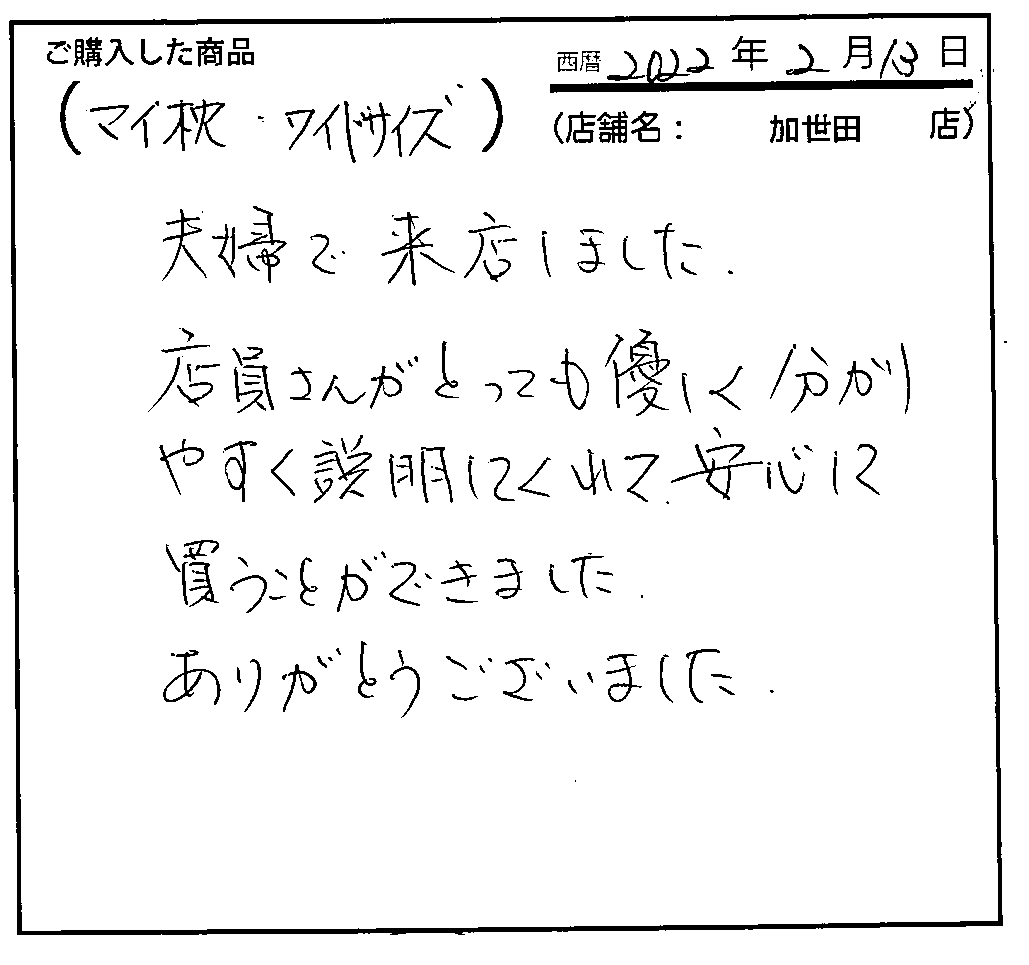 ご購入した商品
西暦 2022 年 2 月 13 日
(マイ枕・ワイドサイズ)
(店舗名： 加世田 店)
夫婦で来店しました.
店員さんがとっても優しく分かり
やすく説明してくれて、安心して
買うことができました.
ありがとうございました.